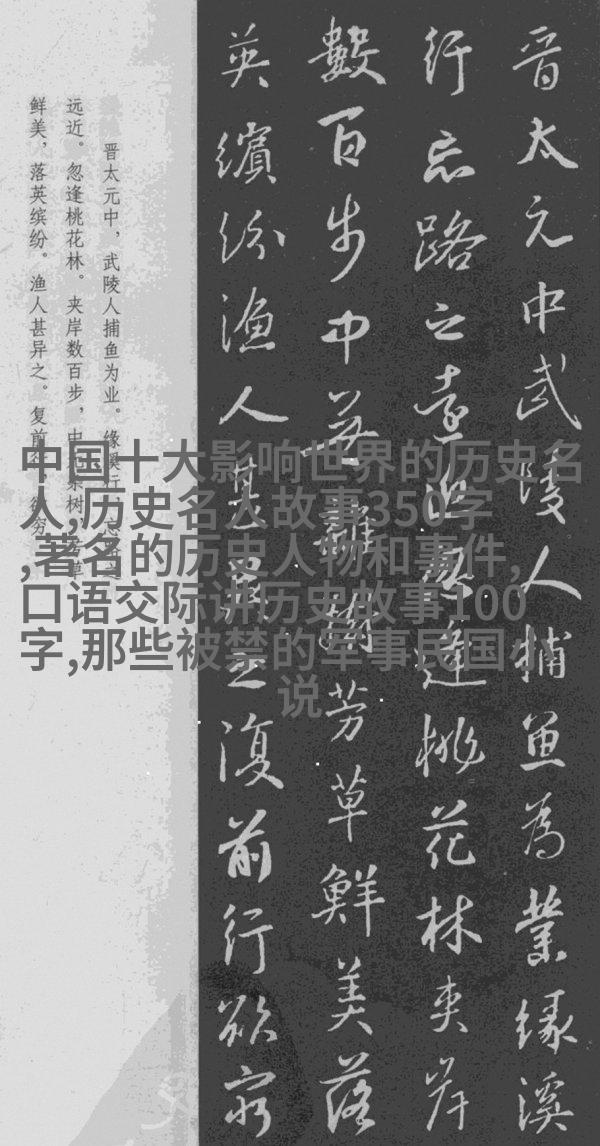 晋太元中武陵人捕魚為業緣溪
行忘路之遠近忽逢桃花林夾岸
數百步中無雜樹芳草鮮美落
英繽紛漁人甚異之復前行欲窮
晋太元中，武陵人捕鱼为业。缘溪行，忘路之
远近。忽逢桃花林。夹岸数百步，中无杂树，芳草
鲜美，落英缤纷。渔人甚异之。复前行，欲穷
中国十大影响世界的历史名
人,历史名人故事350字
,著名的历史人物和事件,
口语交际讲历史故事100
字,那些被禁的军事民国小
说